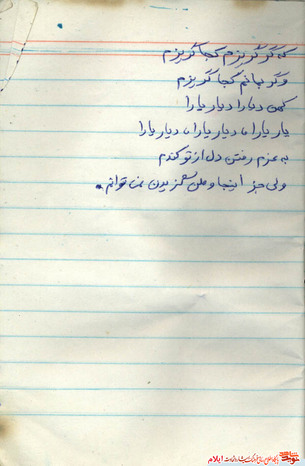 که گر گریزم کجا گریزم
وگر بمانم کجا گریزم
کهن دیارا دیار یارا
یار یارا، دیار یارا، دیار یارا
به عزم رفتن دل از تو کندم
ولی جز اینجا وطن گزیدن نمی توانم.